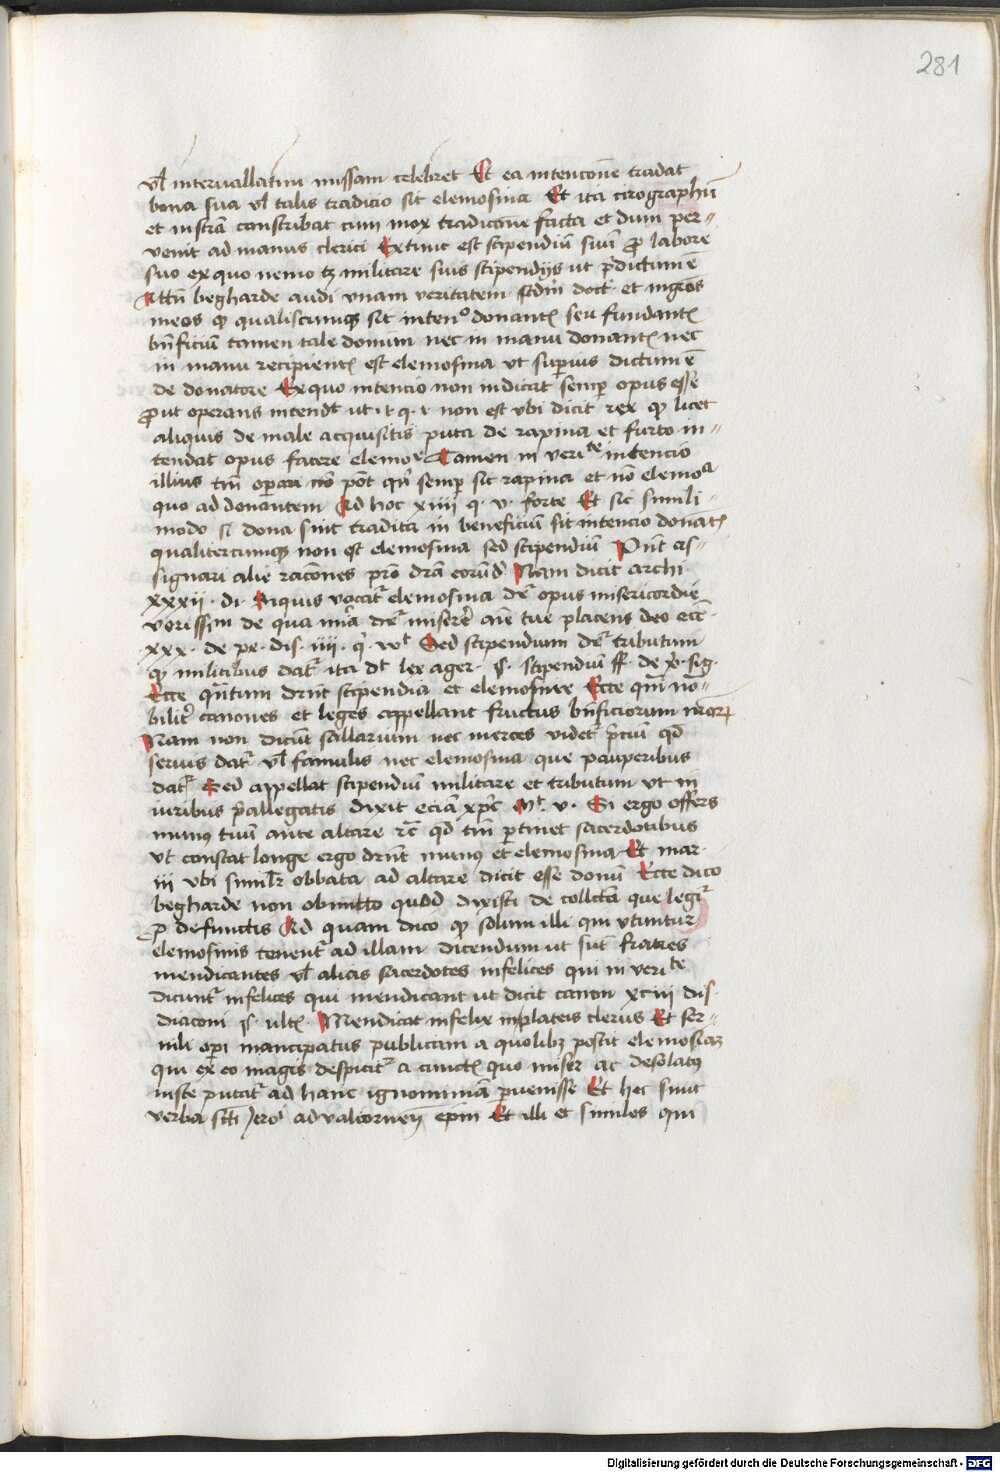 281
vl intervallatim missam celebret Et ea intencone tradat
bona sua vl talis tradicio sit elemosina Et ita cirographū
et instrā conscribat cum mox tradicone facta et dum per-
venit ad manus clerici Extunc est stipendiū suū ꝓ labore
suo ex quo nemo tz militare suis stipendijs ut p̄dictum ē
Attn̄ begharde audi vnam veritatem scdm̄ doct et mgros
meos qꝫ qualiscumqꝫ sit intenᵒ donantꝭ seu fundantꝭ
bn̄ficiū tamen tale donum nec in manu donantꝭ nec
in manu recipientꝭ est elemosina ut suꝑius dictum ē
de donatore Ex quo intencio non indicat semꝑ opus esse
ꝓut operans intendit ut · q · non est vbi dicit rex qꝫ licet
aliquis de male acquisitis puta de rapina et furto in-
tendat opus facere elemoᵉ Tamen in veriᵗᵉ intencio
illius tm̄ oꝑari nō pōt qn̄ semꝑ sit rapina et nō elemoᵃ
quo ad donantem Ad hoc xiiii q. v. forte Et sic simili-
modo si dona sint tradita in beneficiū sit intencio donātꝭ
qualitercumqꝫ non est elemosina sed stipendiū Pn̄t as-
signari alie racones pro dr̄a eorūdꝭ Nam dicit archi.
xxxii. di. siquis vocat elemosina dr̄ opus misericordie
verissim de qua mīa dr̄ misere aīe tue placens deo ecc.
xxx. de pe. dis. iiii. q. Sed stipendium dr̄ tributum
qꝫ militibus dat ita dt lex ager. §. stipendiū ff. de v. sig.
Ecce qn̄tum drn̄t stipendia et elemosine Ecce qm̄ no-
bilitꝭ canones et leges appellant fructus bn̄ficiorum nr̄oꝝ
Nam non dicūt sallarium nec merces videtꝭ p̄ciū qd
servis dat vl famulis nec elemosina que pauperibus
dat Sed appellat stipendiū militare et tributum ut in
iuribus p̄allegatis dixit eciā xp̄c Mt. v. Si ergo offers
munus tuū ante altare rc̄ qd tm̄ ꝑtinet sacerdotibus
ut constat longe ergo drn̄t munus et elemosina Et mar.
iii vbi simil'r obbata ad altare dicit esse donū Ecce dico
begharde non obmitto quod dixisti de collecta que legit
ꝓ defunctis Ad quam dico qꝫ solum illi qui vtuntur
elemosinis tenentꝭ ad illam dicendum ut sut fratres
mendicantes vl alicis sacerdotes infelices qui in veriᵗᵉ
dicuntꝭ infelices qui mendicant ut dicit canon xciii dis.
diaconi §. ultꝭ Mendicat infelix in plateis clerus Et ser-
vili oꝑi mancipatus publicam a quolibꝫ poscit elemosinā
qui ex eo magis despicitꝭ a cunctꝭ quo miser ac desolatꝰ
iuste putatꝭ ad hanc ignominiā ꝑvenisse Et hec sunt
verba scti Jero ad valtorneū ep̄m Et illi et similes qui
Digitalisierung gefördert durch die Deutsche Forschungsgemeinschaft - DFG